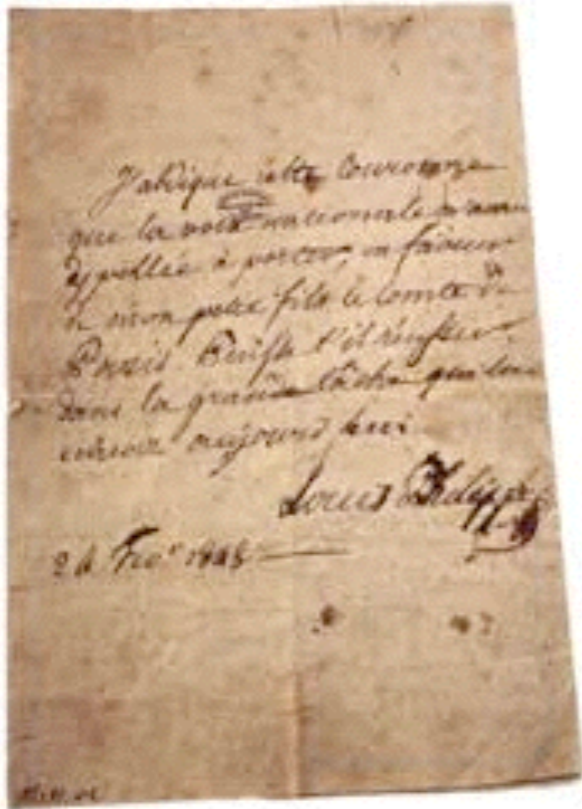 J'abdique cette Couronne
que la voix nationale m'avait
appellé à porter, en faveur
de mon petit fils le Comte de
Paris Puisse t'il réussir
dans la grande tâche qui lui
échoit aujourd'hui
Louis Philippe
24 Fev.r 1848